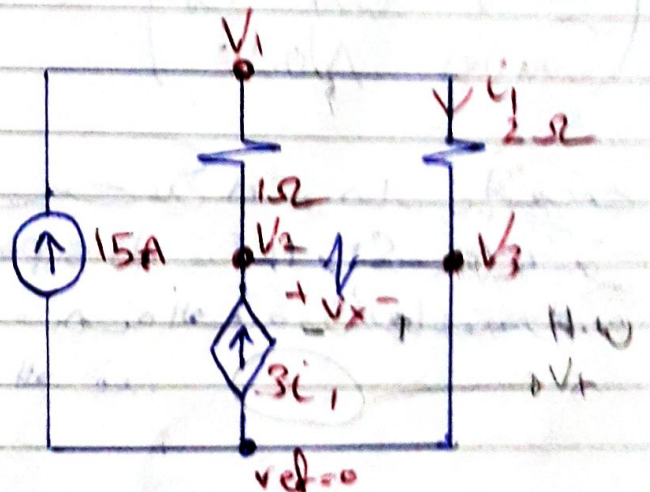 V1
i1
2Ω
1Ω
15A
V2
V3
+ Vx -
- +
H.w
3i1
ref=0